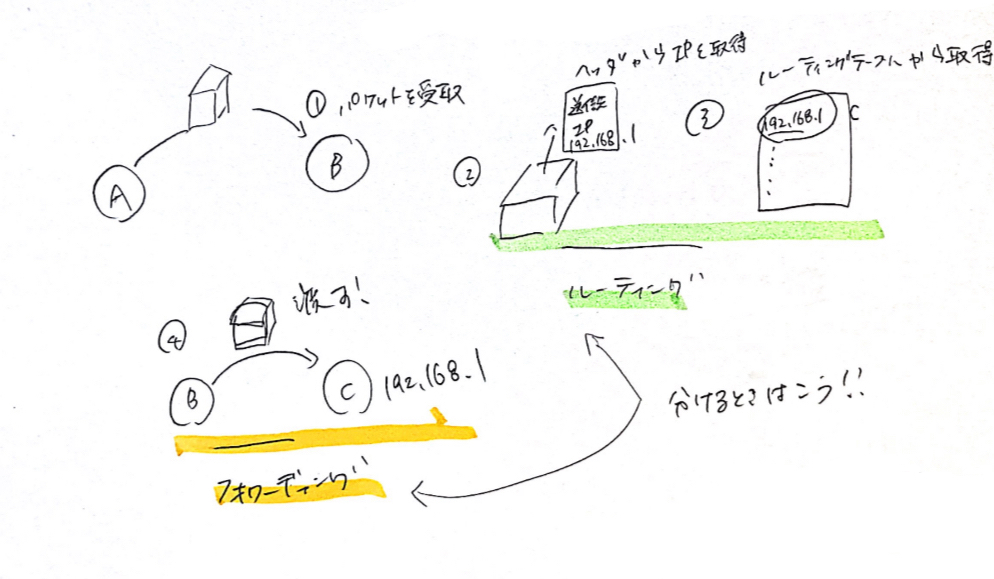 ① パケットを受取
A
B
②
ヘッダからIPを取得
送信先
IP
192.168.1
③
ルーティングテーブルから取得
192.168.1 C
ルーティング
④
渡す!
B
C 192.168.1
フォワーディング
分けるときはこう!!